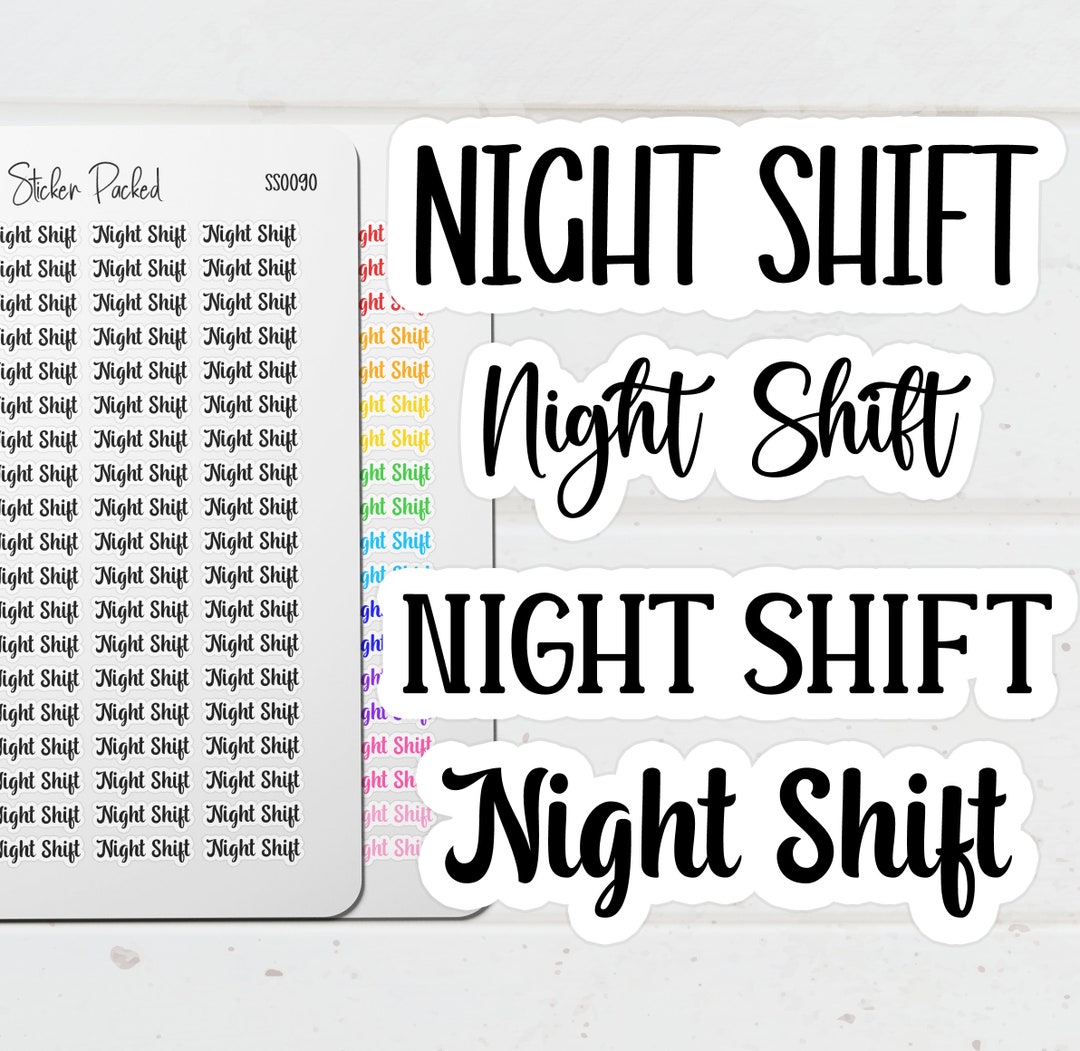 Sticker Packed SS0090
ight Shift Night Shift Night Shift
ight Shift Night Shift Night Shift
ight Shift Night Shift Night Shift
ight Shift Night Shift Night Shift
ight Shift Night Shift Night Shift
ight Shift Night Shift Night Shift
ight Shift Night Shift Night Shift
ight Shift Night Shift Night Shift
ight Shift Night Shift Night Shift
ight Shift Night Shift Night Shift
ight Shift Night Shift Night Shift
ight Shift Night Shift Night Shift
ight Shift Night Shift Night Shift
ight Shift Night Shift Night Shift
ight Shift Night Shift Night Shift
ight Shift Night Shift Night Shift
ight Shift Night Shift Night Shift
ight Shift Night Shift Night Shift
ight Shift Night Shift Night Shift
ght
ght
ght
ght Shift
ght Shift
ght Shift
ght Shift
ght Shift
ght Shift
ght Shift
ght
ght
ght
ght
ght Shift
ght
ght Shift
ght
NIGHT SHIFT
Night Shift
NIGHT SHIFT
Night Shift